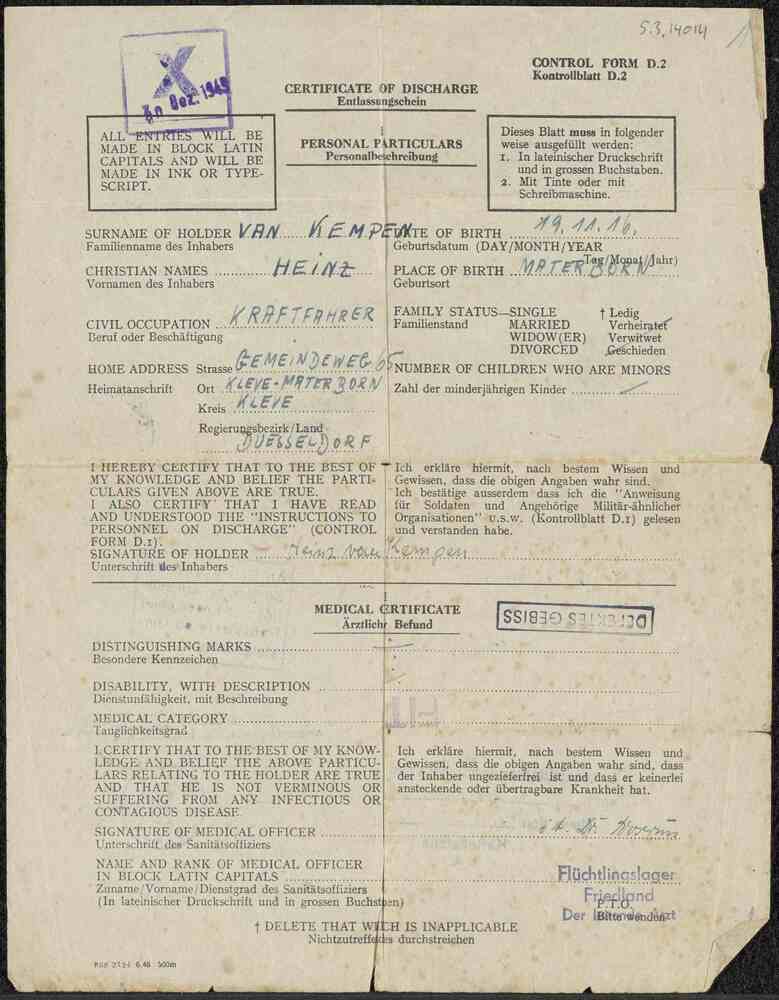 5.3.14014
X
30 Dez. 1949
CONTROL FORM D.2
Kontrollblatt D.2
CERTIFICATE OF DISCHARGE
Entlassungschein
I
PERSONAL PARTICULARS
Personalbeschreibung
ALL ENTRIES WILL BE
MADE IN BLOCK LATIN
CAPITALS AND WILL BE
MADE IN INK OR TYPE-
SCRIPT.
Dieses Blatt muss in folgender
weise ausgefüllt werden:
1. In lateinischer Druckschrift
und in grossen Buchstaben.
2. Mit Tinte oder mit
Schreibmaschine.
SURNAME OF HOLDER VAN KEMPEN
Familienname des Inhabers
DATE OF BIRTH 19.11.16.
Geburtsdatum (DAY/MONTH/YEAR
Tag/Monat/Jahr)
CHRISTIAN NAMES HEINZ
Vornamen des Inhabers
PLACE OF BIRTH MATERBORN
Geburtsort
CIVIL OCCUPATION KRAFTFAHRER
Beruf oder Beschäftigung
FAMILY STATUS—SINGLE † Ledig
Familienstand MARRIED Verheiratet
WIDOW(ER) Verwitwet
DIVORCED Geschieden
HOME ADDRESS Strasse GEMEINDEWEG 65
Heimatanschrift Ort KLEVE-MATERBORN
Kreis KLEVE
Regierungsbezirk/Land
DUESSELDORF
NUMBER OF CHILDREN WHO ARE MINORS
Zahl der minderjährigen Kinder
I HEREBY CERTIFY THAT TO THE BEST OF
MY KNOWLEDGE AND BELIEF THE PARTI-
CULARS GIVEN ABOVE ARE TRUE.
I ALSO CERTIFY THAT I HAVE READ
AND UNDERSTOOD THE "INSTRUCTIONS TO
PERSONNEL ON DISCHARGE" (CONTROL
FORM D.1).
SIGNATURE OF HOLDER Heinz van Kempen
Unterschrift des Inhabers
Ich erkläre hiermit, nach bestem Wissen und
Gewissen, dass die obigen Angaben wahr sind.
Ich bestätige ausserdem dass ich die "Anweisung
für Soldaten und Angehörige Militär-ähnlicher
Organisationen" u.s.w. (Kontrollblatt D.1) gelesen
und verstanden habe.
MEDICAL CERTIFICATE
Ärztlicher Befund
DEFEKTES GEBISS
DISTINGUISHING MARKS
Besondere Kennzeichen
DISABILITY, WITH DESCRIPTION
Dienstunfähigkeit, mit Beschreibung
MEDICAL CATEGORY
Tauglichkeitsgrad
I CERTIFY THAT TO THE BEST OF MY KNOW-
LEDGE AND BELIEF THE ABOVE PARTICU-
LARS RELATING TO THE HOLDER ARE TRUE
AND THAT HE IS NOT VERMINOUS OR
SUFFERING FROM ANY INFECTIOUS OR
CONTAGIOUS DISEASE.
Ich erkläre hiermit, nach bestem Wissen und
Gewissen, dass die obigen Angaben wahr sind, dass
der Inhaber ungezieferfrei ist und dass er keinerlei
ansteckende oder übertragbare Krankheit hat.
SIGNATURE OF MEDICAL OFFICER
Unterschrift des Sanitätsoffiziers
NAME AND RANK OF MEDICAL OFFICER
IN BLOCK LATIN CAPITALS
Zuname/Vorname/Dienstgrad des Sanitätsoffiziers
(In lateinischer Druckschrift und in grossen Buchstaben)
Flüchtlingslager
Friedland
P.T.O.
Bitte wenden
† DELETE THAT WHICH IS INAPPLICABLE
Nichtzutreffendes durchstreichen